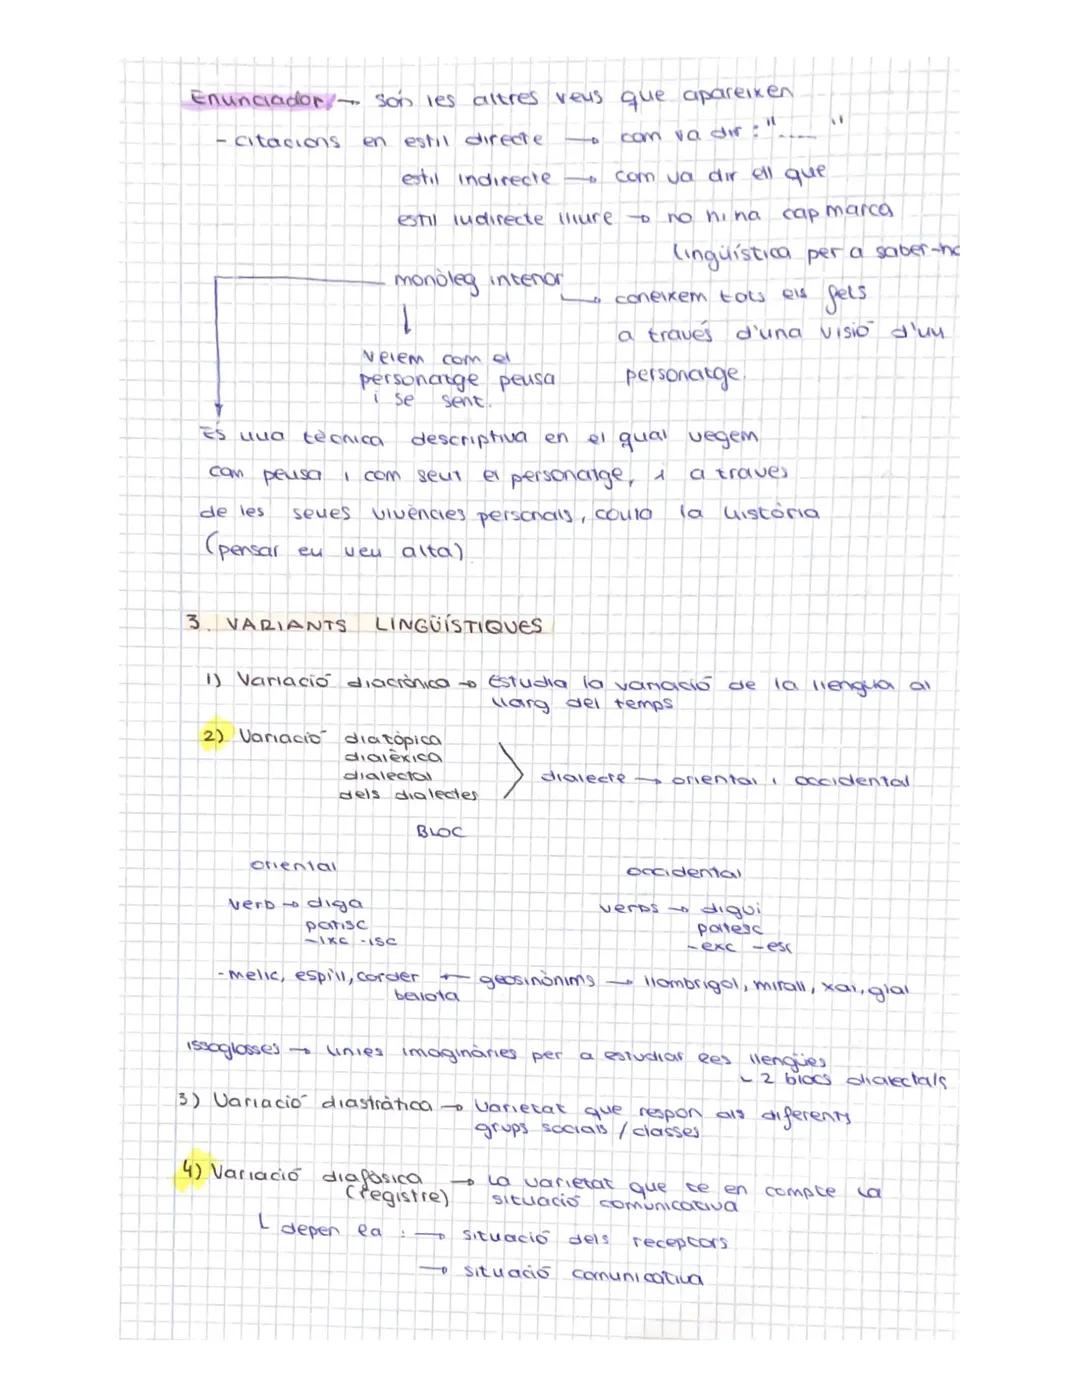 Enunciador → són les altres veus que apareixen
- citacions en estil directe → com va dir : "....."
estil indirecte → com va dir ell que
estil indirecte lliure → no hi ha cap marca
lingüística per a saber-ho
monòleg interior → coneixem tots els fets
a través d'una visió d'un
personatge.
↓
veiem com el
personatge pensa
i se sent.
És una tècnica descriptiva en el qual vegem
com pensa i com sent el personatge, i a traves
de les seues vivències personals, conta la història
(pensar en veu alta)
3. VARIANTS LINGÜÍSTIQUES
1) Variació diacrònica → Estudia la variació de la llengua al
llarg del temps
2) Variació diatòpica
dialèxica
dialectal
dels dialectes
> dialecte → oriental i occidental
BLOC
oriental occidental
verb → diga verbs → digui
patisc patesc
-ixc -isc -exc -esc
- melic, espill, corder ← geosinònims → llombrigol, mirall, xai, glal
bellota
issoglosses → línies imaginàries per a estudiar les llengües
↳ 2 blocs dialectals
3) Variació diastràtica → Varietat que respon als diferents
grups socials / classes
4) Variació diafàsica → La varietat que te en compte la
(registre) situació comunicativa
↳ depen ea : → situació dels receptors
→ situació comunicativa